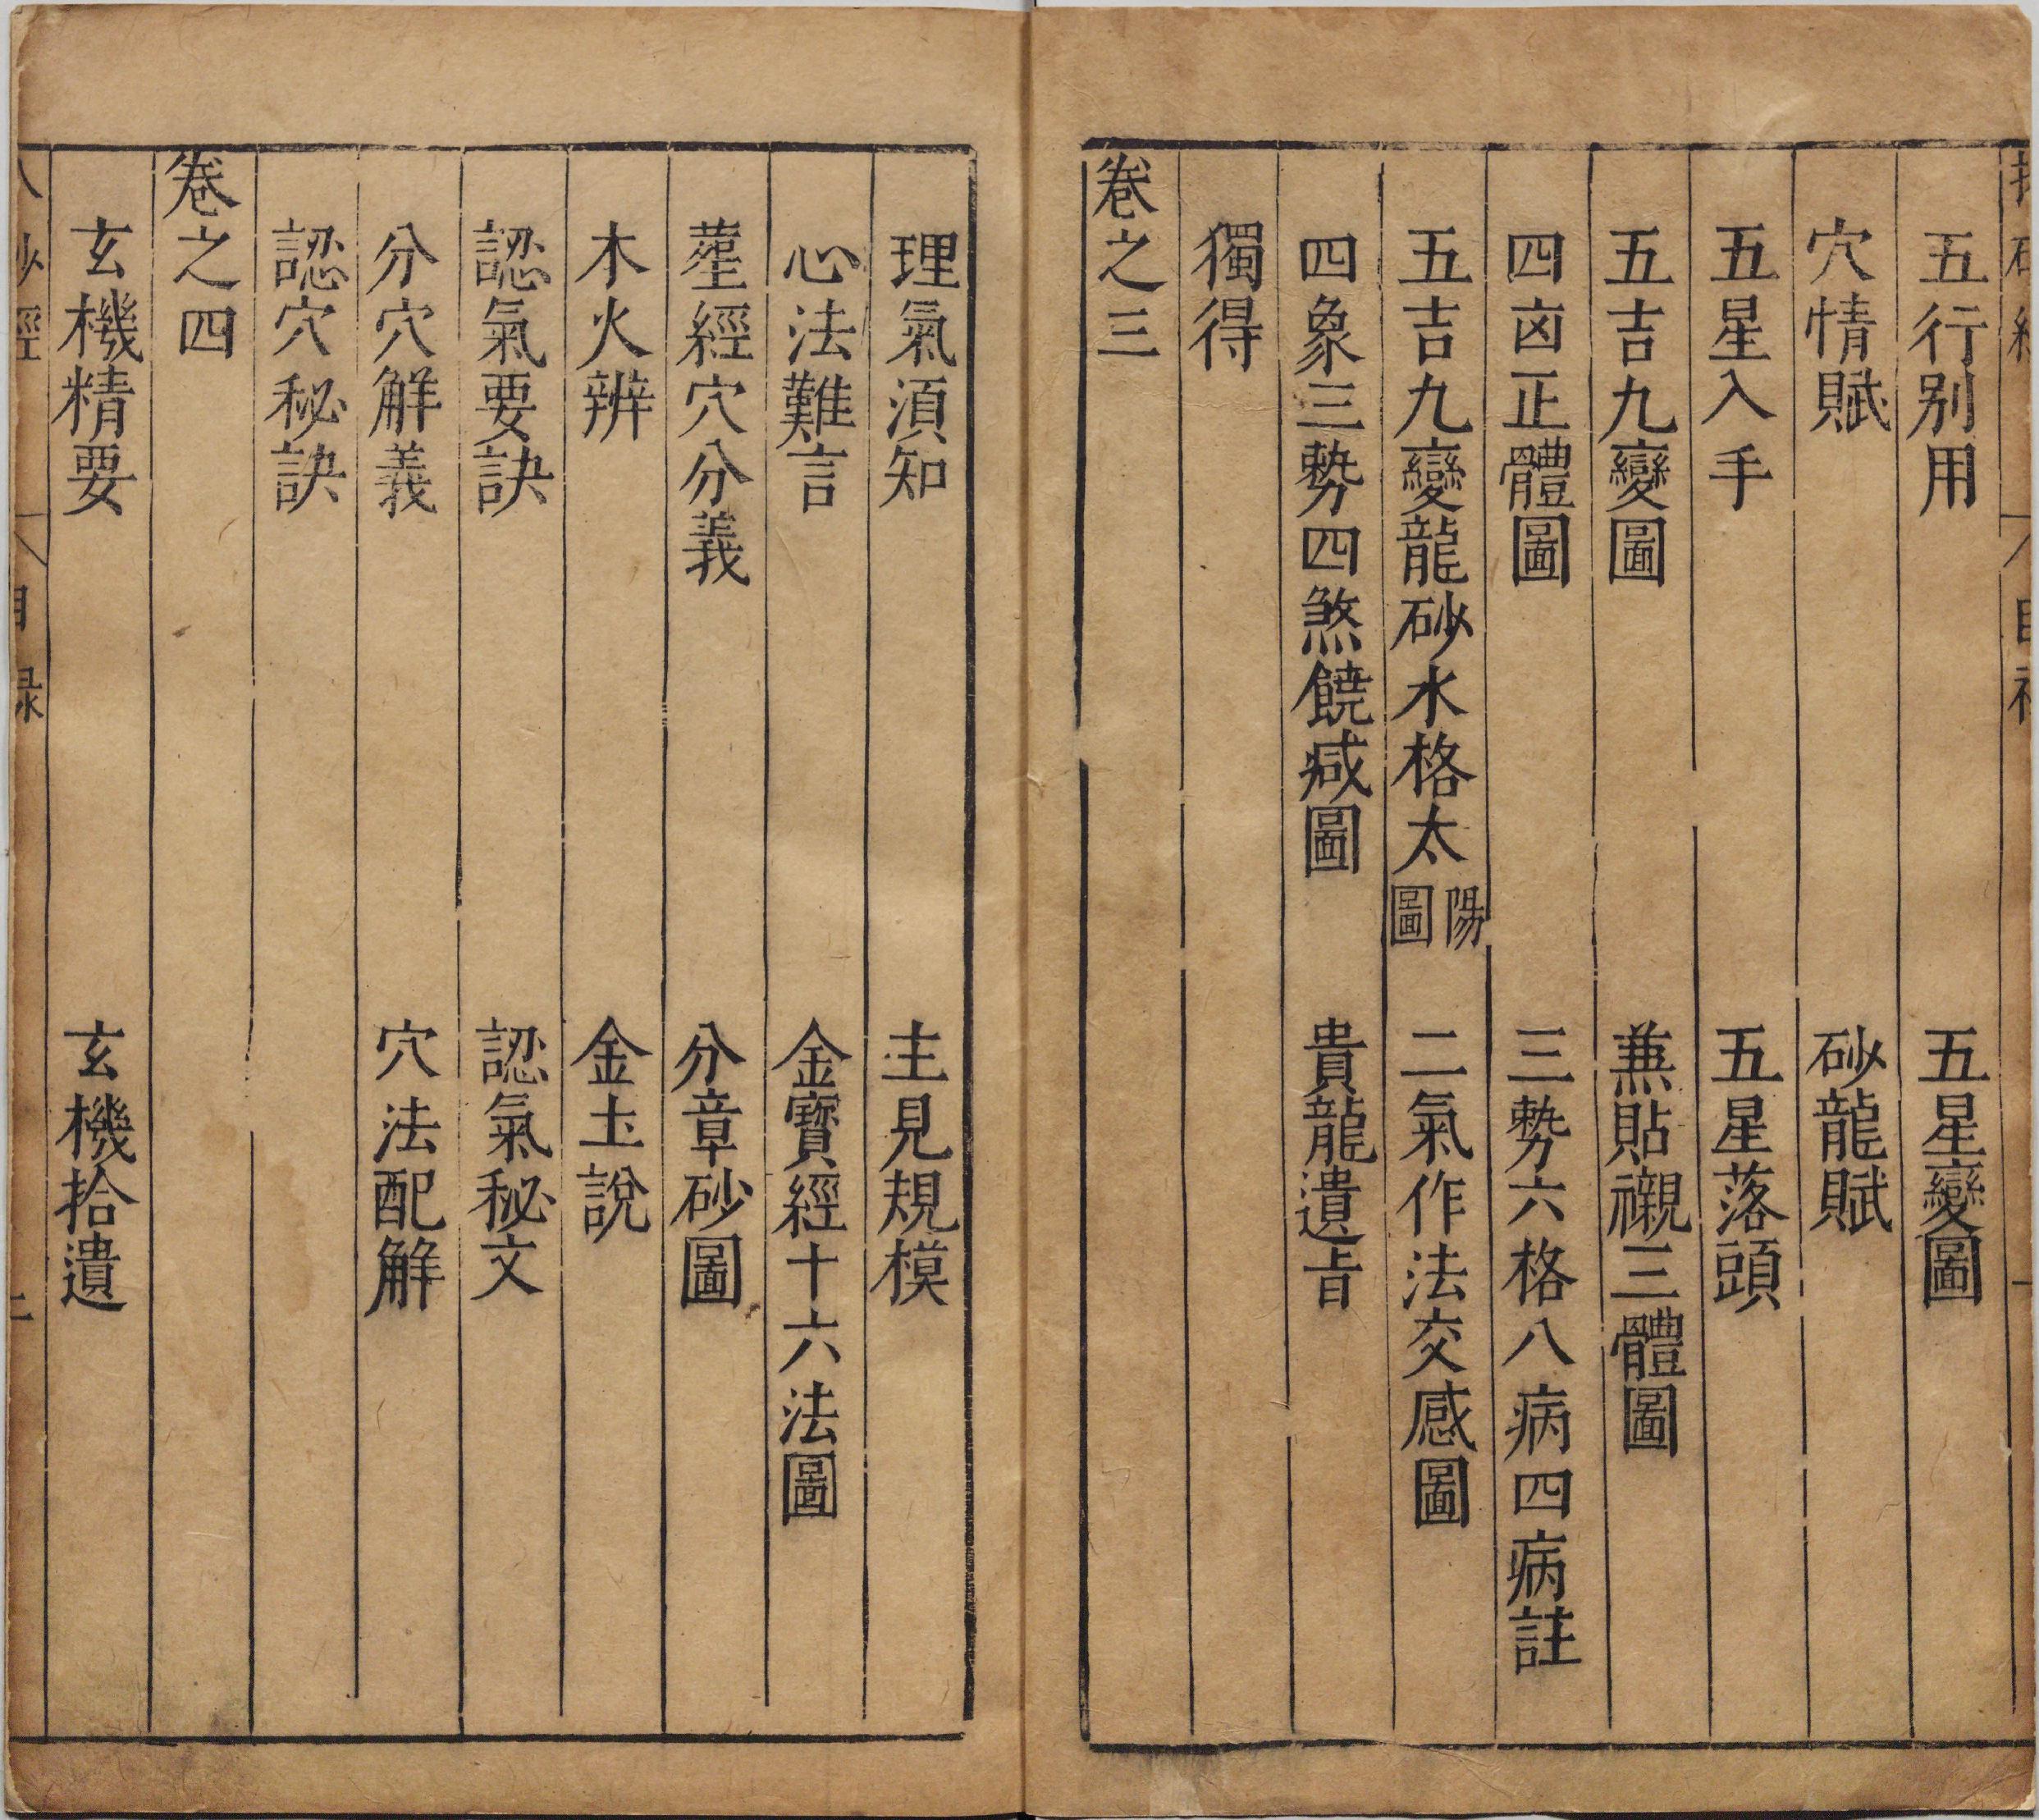 五行别用　五星變圖
穴情賦　砂龍賦
五星入手　五星落頭
五吉九變圖　兼貼襯三體圖
四凶正體圖　三勢六格八病四病註
五吉九變龍砂水格太陽圖　二氣作法交感圖
四象三勢四煞饒减圖　貴龍遺旨
獨得
卷之三
理氣湏知　主見規模
心法難言　金寶經十六法圖
塟經穴分義　分章砂圖
木火辨　金土說
認氣要訣　認氣秘文
分穴觧義　穴法配觧
認穴秘訣
卷之四
玄機精要　玄機拾遺
目録